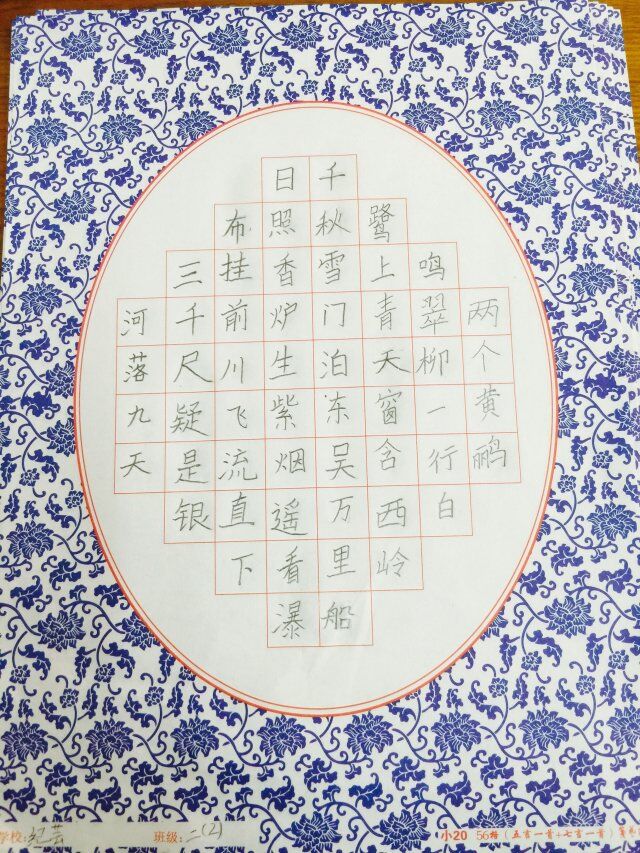 两个黄鹂
鸣翠柳一行白
鹭上青天窗含西岭
千秋雪门泊东吴万里船
日照香炉生紫烟遥看瀑
布挂前川飞流直下
三千尺疑是银
河落九天
学校:纪芸 班级:二(2) 小20 56格(五言一首+七言一首)